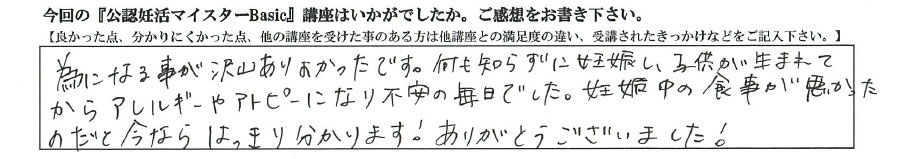 今回の『公認妊活マイスターBasic』講座はいかがでしたか。ご感想をお書き下さい。
【良かった点、分かりにくかった点、他の講座を受けた事のある方は他講座との満足度の違い、受講されたきっかけなどをご記入下さい。】
為になる事が沢山ありよかったです。何も知らずに妊娠し、子供が生まれて
からアレルギーやアトピーになり不安の毎日でした。妊娠中の食事が悪かった
のだと今ならはっきり分かります！ありがとうございました！